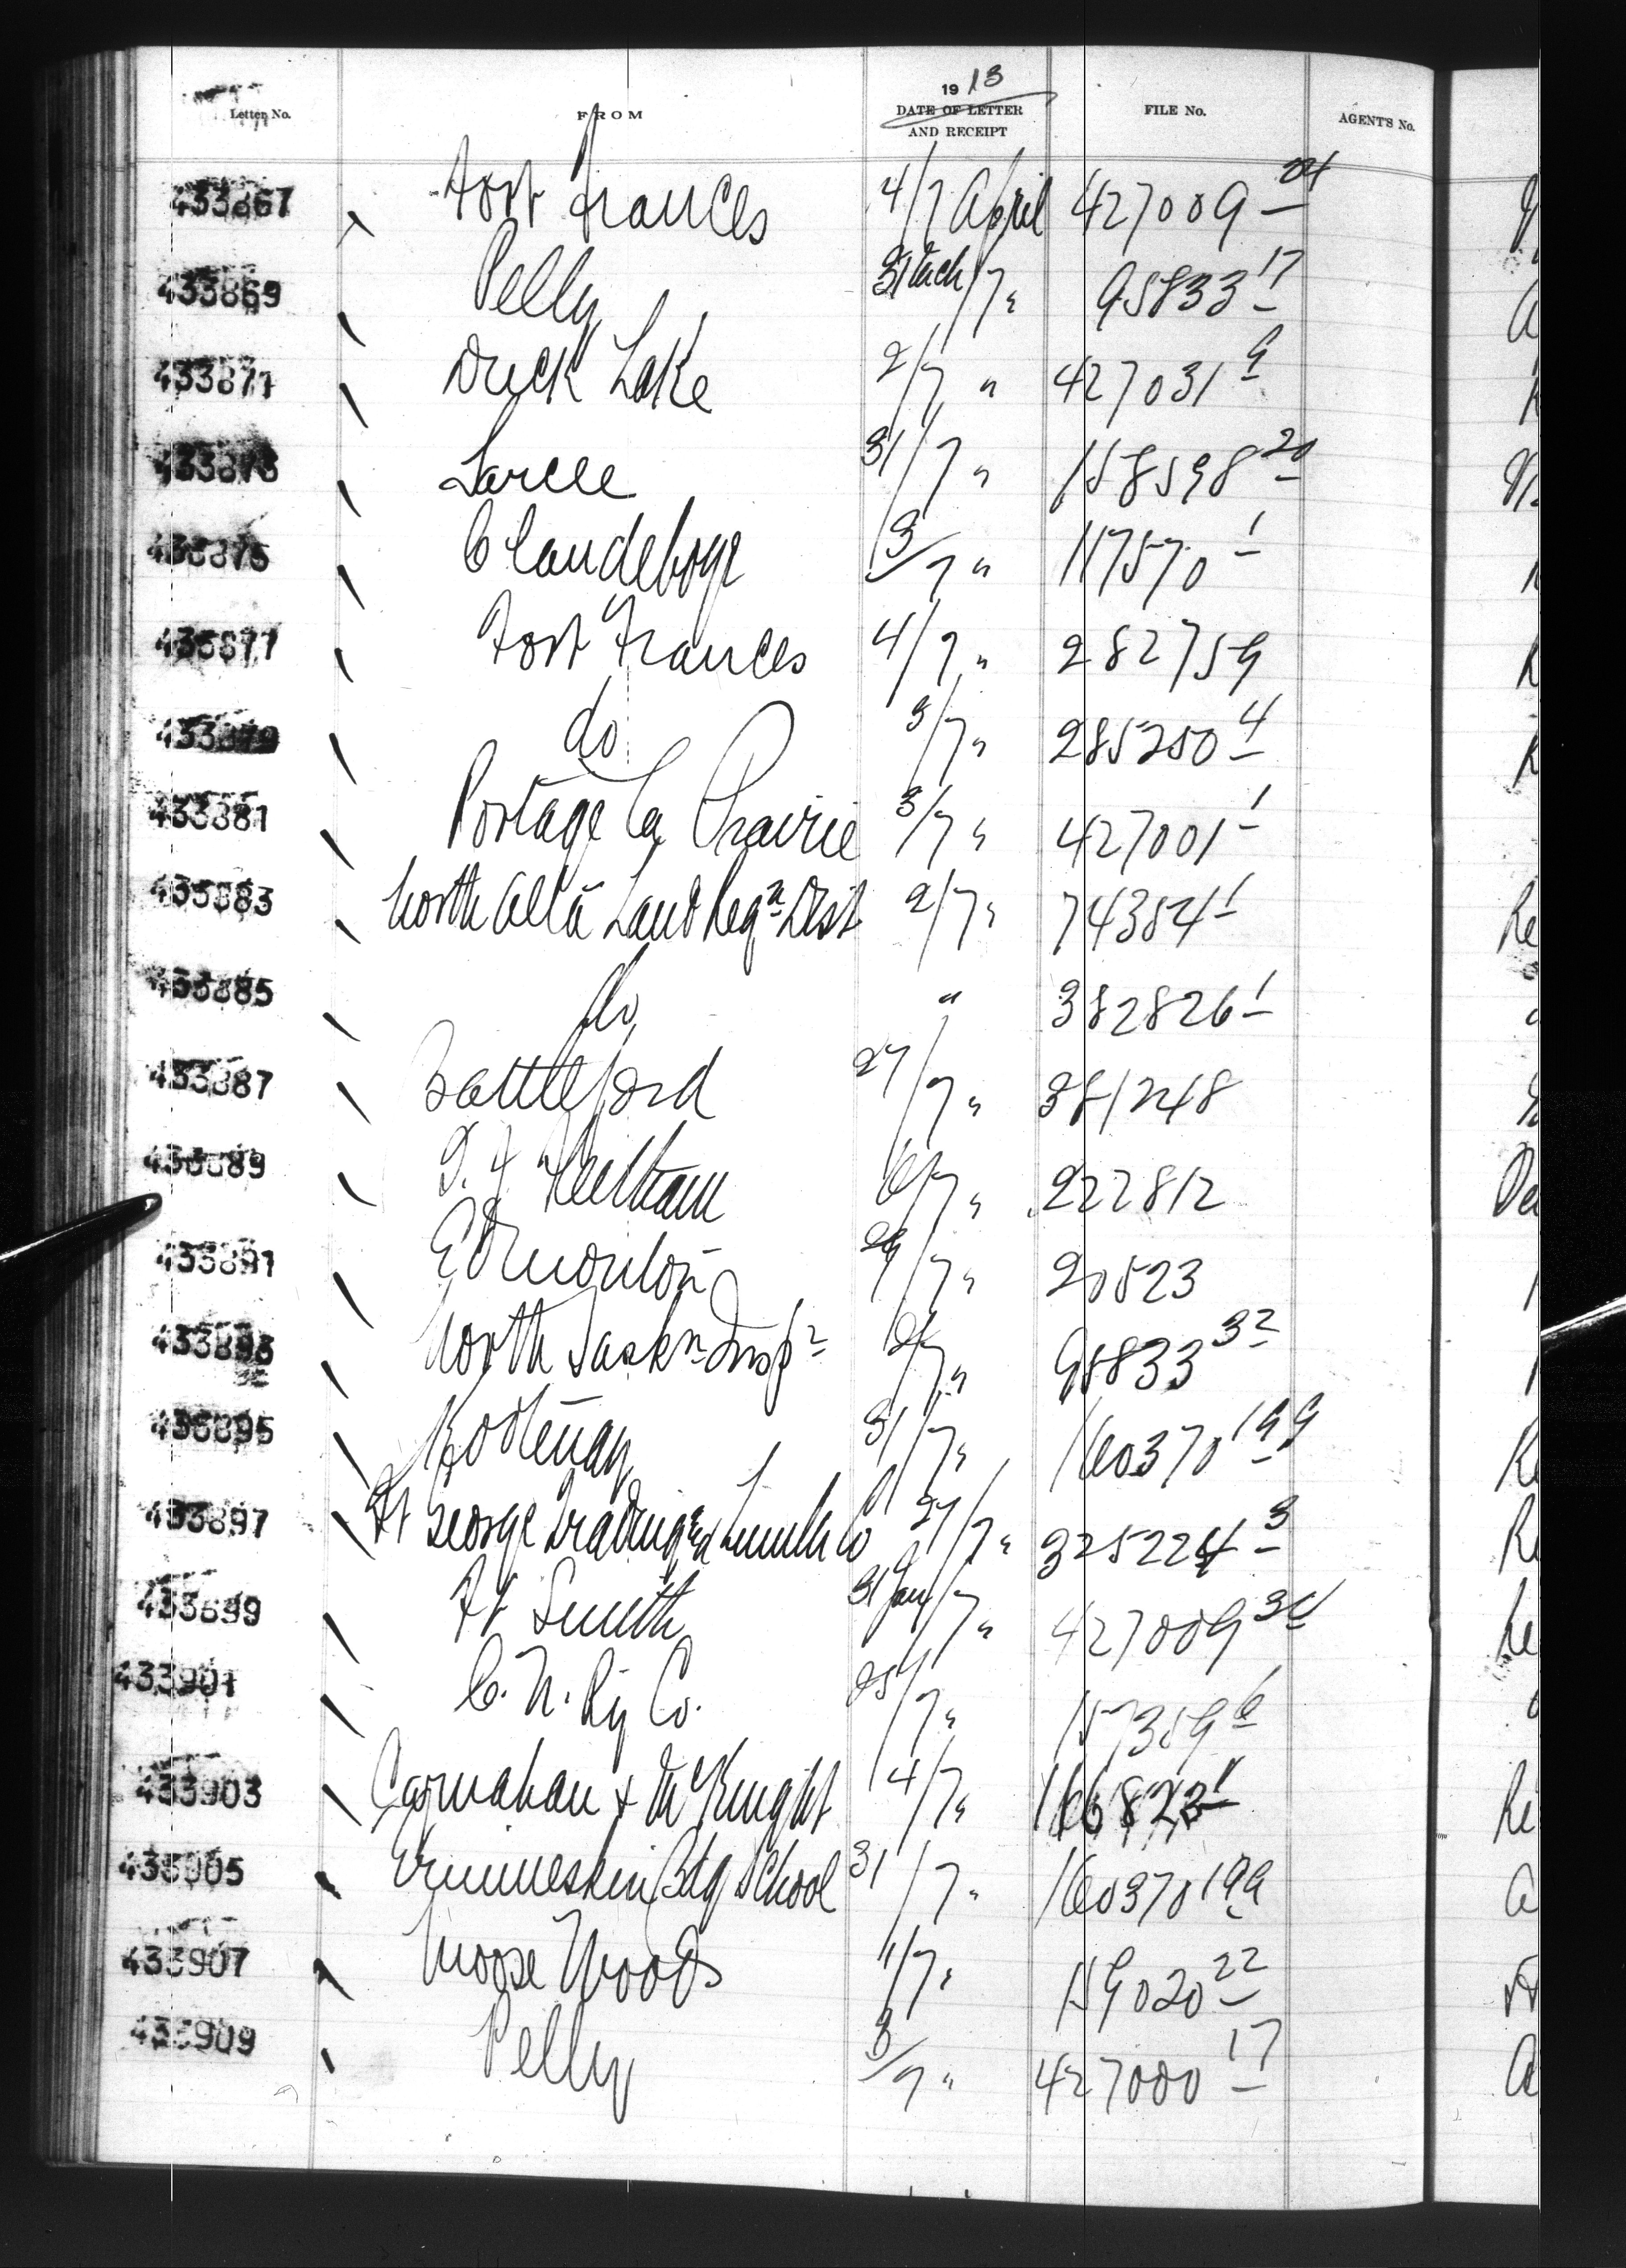 19 13
Letter No. FROM DATE OF LETTER AND RECEIPT FILE No. AGENT'S No.
433867 Fort Frances 4/7 April 427009 24
433869 Pelly 31 Mch/7 " 95833 17
433871 Duck Lake 2/7 " 427031 9
433873 Sarcee 31/7 " 158598 20
433875 Clandeboye 3/7 " 117570 1
433877 Fort Frances 4/7 " 282759
433879 do 3/7 " 285250 4
433881 Portage la Prairie 3/7 " 427001 1
433883 North Alta Land Regn Dist 2/7 " 74384 1
433885 do " 382826 1
433887 Battleford 27/7 " 381248
433889 6/7 " 222812
433891 Edmonton 29/7 " 20523
433893 North Saskn Insp 2/7 " 95833 32
433895 Kootenay 31/7 " 160370 199
433897 Ft George Trading & Co 27/7 " 325224 3
433899 Ft Smith 31 Jan/7 " 427009 34
433901 C. N. Ry Co. 25/7 " 157359 6
433903 Carnahan & McKnight 4/7 " 166823 1
433905 Ermineskin Bdg School 31/7 " 160370 199
433907 Moose Woods 1/7 " 159020 22
433909 Pelly 3/7 " 427000 17